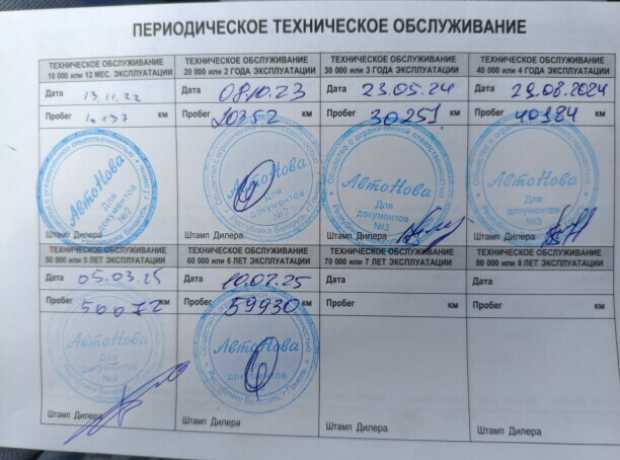 ПЕРИОДИЧЕСКОЕ ТЕХНИЧЕСКОЕ ОБСЛУЖИВАНИЕ
ТЕХНИЧЕСКОЕ ОБСЛУЖИВАНИЕ
10 000 или 12 МЕС. ЭКСПЛУАТАЦИИ
Дата 13.11.22
Пробег км
АвтоНова
Для документов
№2
Штамп Дилера
ТЕХНИЧЕСКОЕ ОБСЛУЖИВАНИЕ
20 000 или 2 ГОДА ЭКСПЛУАТАЦИИ
Дата 08.10.23
Пробег 20352 км
АвтоНова
Для
документов
№2
Штамп Дилера
ТЕХНИЧЕСКОЕ ОБСЛУЖИВАНИЕ
30 000 или 3 ГОДА ЭКСПЛУАТАЦИИ
Дата 23.05.24
Пробег 30251 км
АвтоНова
Для
документов
№3
Штамп Дилера
ТЕХНИЧЕСКОЕ ОБСЛУЖИВАНИЕ
40 000 или 4 ГОДА ЭКСПЛУАТАЦИИ
Дата 29.08.2024
Пробег 40184 км
АвтоНова
Для
документов
№3
Штамп Дилера
ТЕХНИЧЕСКОЕ ОБСЛУЖИВАНИЕ
50 000 или 5 ЛЕТ ЭКСПЛУАТАЦИИ
Дата 05.03.25
Пробег 50072 км
АвтоНова
Для
документов
Штамп Дилера
ТЕХНИЧЕСКОЕ ОБСЛУЖИВАНИЕ
60 000 или 6 ЛЕТ ЭКСПЛУАТАЦИИ
Дата 10.07.25
Пробег 59930 км
АвтоНова
Для
документов
Штамп Дилера
ТЕХНИЧЕСКОЕ ОБСЛУЖИВАНИЕ
70 000 или 7 ЛЕТ ЭКСПЛУАТАЦИИ
Дата
Пробег км
Штамп Дилера
ТЕХНИЧЕСКОЕ ОБСЛУЖИВАНИЕ
80 000 или 8 ЛЕТ ЭКСПЛУАТАЦИИ
Дата
Пробег км
Штамп Дилера